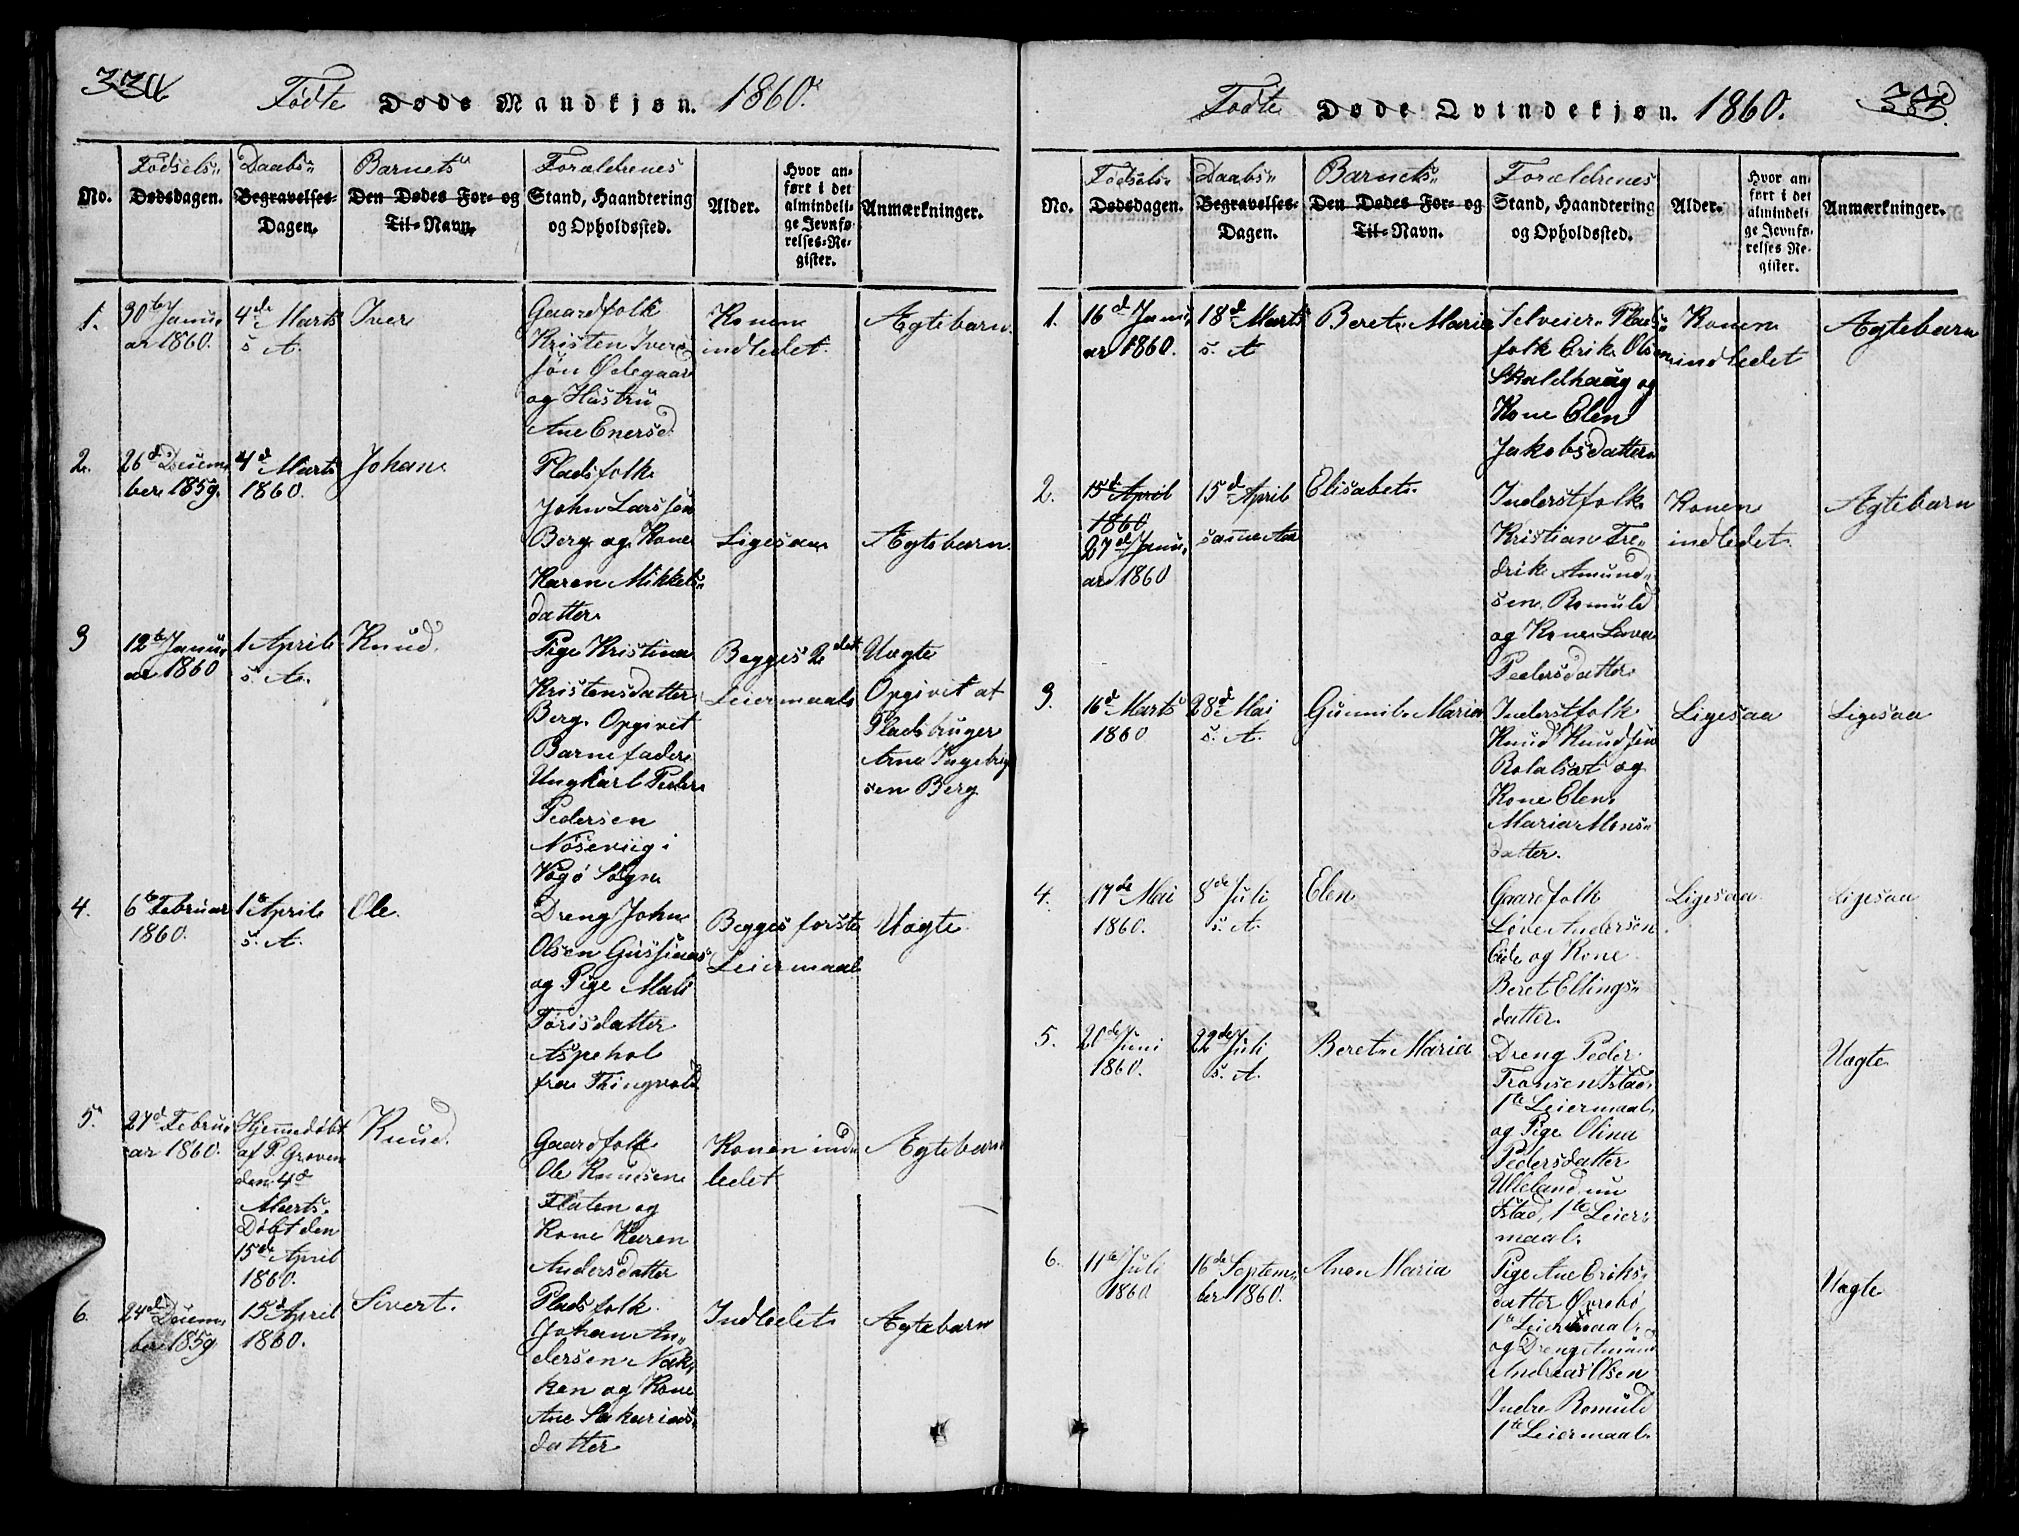 330
Fødte Døde Mandkjøn. 1860.
No.
Fødsels-
Dødsdagen.
Daabs-
Begravelses-
Dagen.
Barnets
Den Dødes For- og
Til-Navn.
Forældrenes
Stand, Haandtering
og Opholdssted.
Alder.
Hvor an-
ført i det
almindeli-
ge Jevnfø-
relses-Re-
gister.
Anmærkninger.
1.
30te Janu-
ar 1860.
4de Marts
s. A.
Iver
Gaardfolk
Kristen Ivers
søn Ødegaar
og Hustru
Ane Enersd
Konen
indledet.
Ægtebarn.
2.
26d Decem-
ber 1859.
4d Marts
1860.
Johan
Pladsfolk
John Larssen
Berg og Kone
Karen Mikkels-
datter
Ligesaa
Ægtebarn.
3
12te Janu-
ar 1860
1 April
s. A.
Knud.
Pige Kristina
Kristensdatter
Berg. Opgivet
Barnefader
Ungkarl Peder
Pedersen
Nøseviig i
Vogø Sogn
Begges 2det
Leiermaal
Uægte
Opgivet af
Pladsbruger
Arne Ingebrig
sen Berg
4.
6te Februar
1860.
1te April
s. A.
Ole.
Dreng John
Olsen Gussiaas
og Pige Mali
Torisdatter
Aspehol
fra Thingvold
Begges første
Leiermaal
Uægte
5.
27d Febru-
ar 1860.
Hjemmedøbt
af P. Groven
den 4d
Marts.
Døbt den
15de April
1860.
Knud.
Gaardfolk
Ole Knudsen
Flaten og
Kone Karen
Andersdatter
Konen ind-
ledet
Ægtebarn
6.
24d Decem-
ber 1859
15d April
1860.
Sivert.
Pladsfolk
Johan An-
dersen Nak-
ken og Kone
Ane Sakarias-
datter
Indledet
Ægtebarn
Fødte Døde Qvindekjøn. 1860.
No.
Fødsels-
Dødsdagen.
Daabs-
Begravelses-
Dagen.
Barnets-
Den Dødes For- og
Til-Navn.
Forældrenes
Stand, Haandtering
og Opholdssted.
Alder.
Hvor an-
ført i det
almindeli-
ge Jevnfø-
relses Re-
gister.
Anmærkninger.
1.
16d Janu-
ar 1860.
18d Marts
s. A
Beret Maria
Selveier Plads-
folk Erik Olsen
Skaldhaug og
Kone Elen
Jakobsdatter
Konen
indledet
Ægtebarn
2.
15d April
1860
27d Janu-
ar 1860
15d April
samme Aar
Elisabet.
Inderstfolk
Kristian Fre-
drik Amund-
sen Romuld
og Kone
Pedersdatter
Konen
indledet.
Ægtebarn
3.
16d Marts
1860
28d Mai
s. A.
Gunnil Maria
Inderstfolk
Knud Knudsen
Rolalset og
Kone Elen
Maria Mons-
datter.
Ligesaa
Ligesaa
4.
17de Mai
1860.
8de Juli
s. A.
Elen
Gaardfolk
Andersen
Eide og Kone
Beret Ellings-
datter.
Ligesaa.
Ligesaa
5.
20de Juni
1860.
22de Juli
s. A.
Beret Maria
Dreng Peder
Transen Istad,
1te Leiermaal,
og Pige Olina
Pedersdatter
Ulleland nu
Istad, 1te Leier-
maal.
Uægte
6.
11te Juli
1860
16de Septem-
ber 1860.
Ane Maria
Pige Ane Eriks-
datter Ørebø
1te Leiermaal
og Dreng Amund
Andreas Olsen
Indre Romuld
1te Leiermaal.
Uægte